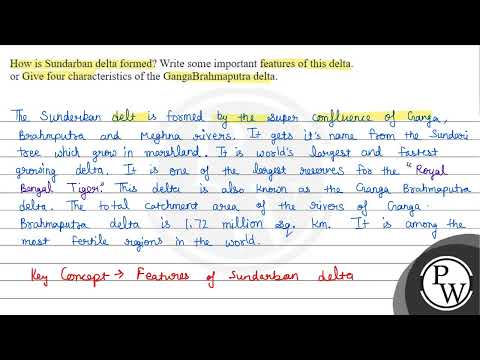 How is Sundarban delta formed? Write some important features of this delta.
or Give four characteristics of the GangaBrahmaputra delta.
The Sunderban delt is formed by the super confluence of Ganga,
Brahmputra and Meghna rivers. It gets it's name from the Sundari
tree which grow in marshland. It is world's largest and fastest
growing delta. It is one of the largest reserves for the "Royal
Bengal Tiger." This delta is also known as the Ganga Brahmaputra
delta. The total catchment area of the rivers of Ganga-
Brahmaputra delta is 1.72 million sq. km. It is among the
most fertile regions in the world.
Key Concept → Features of Sundarban delta
PW